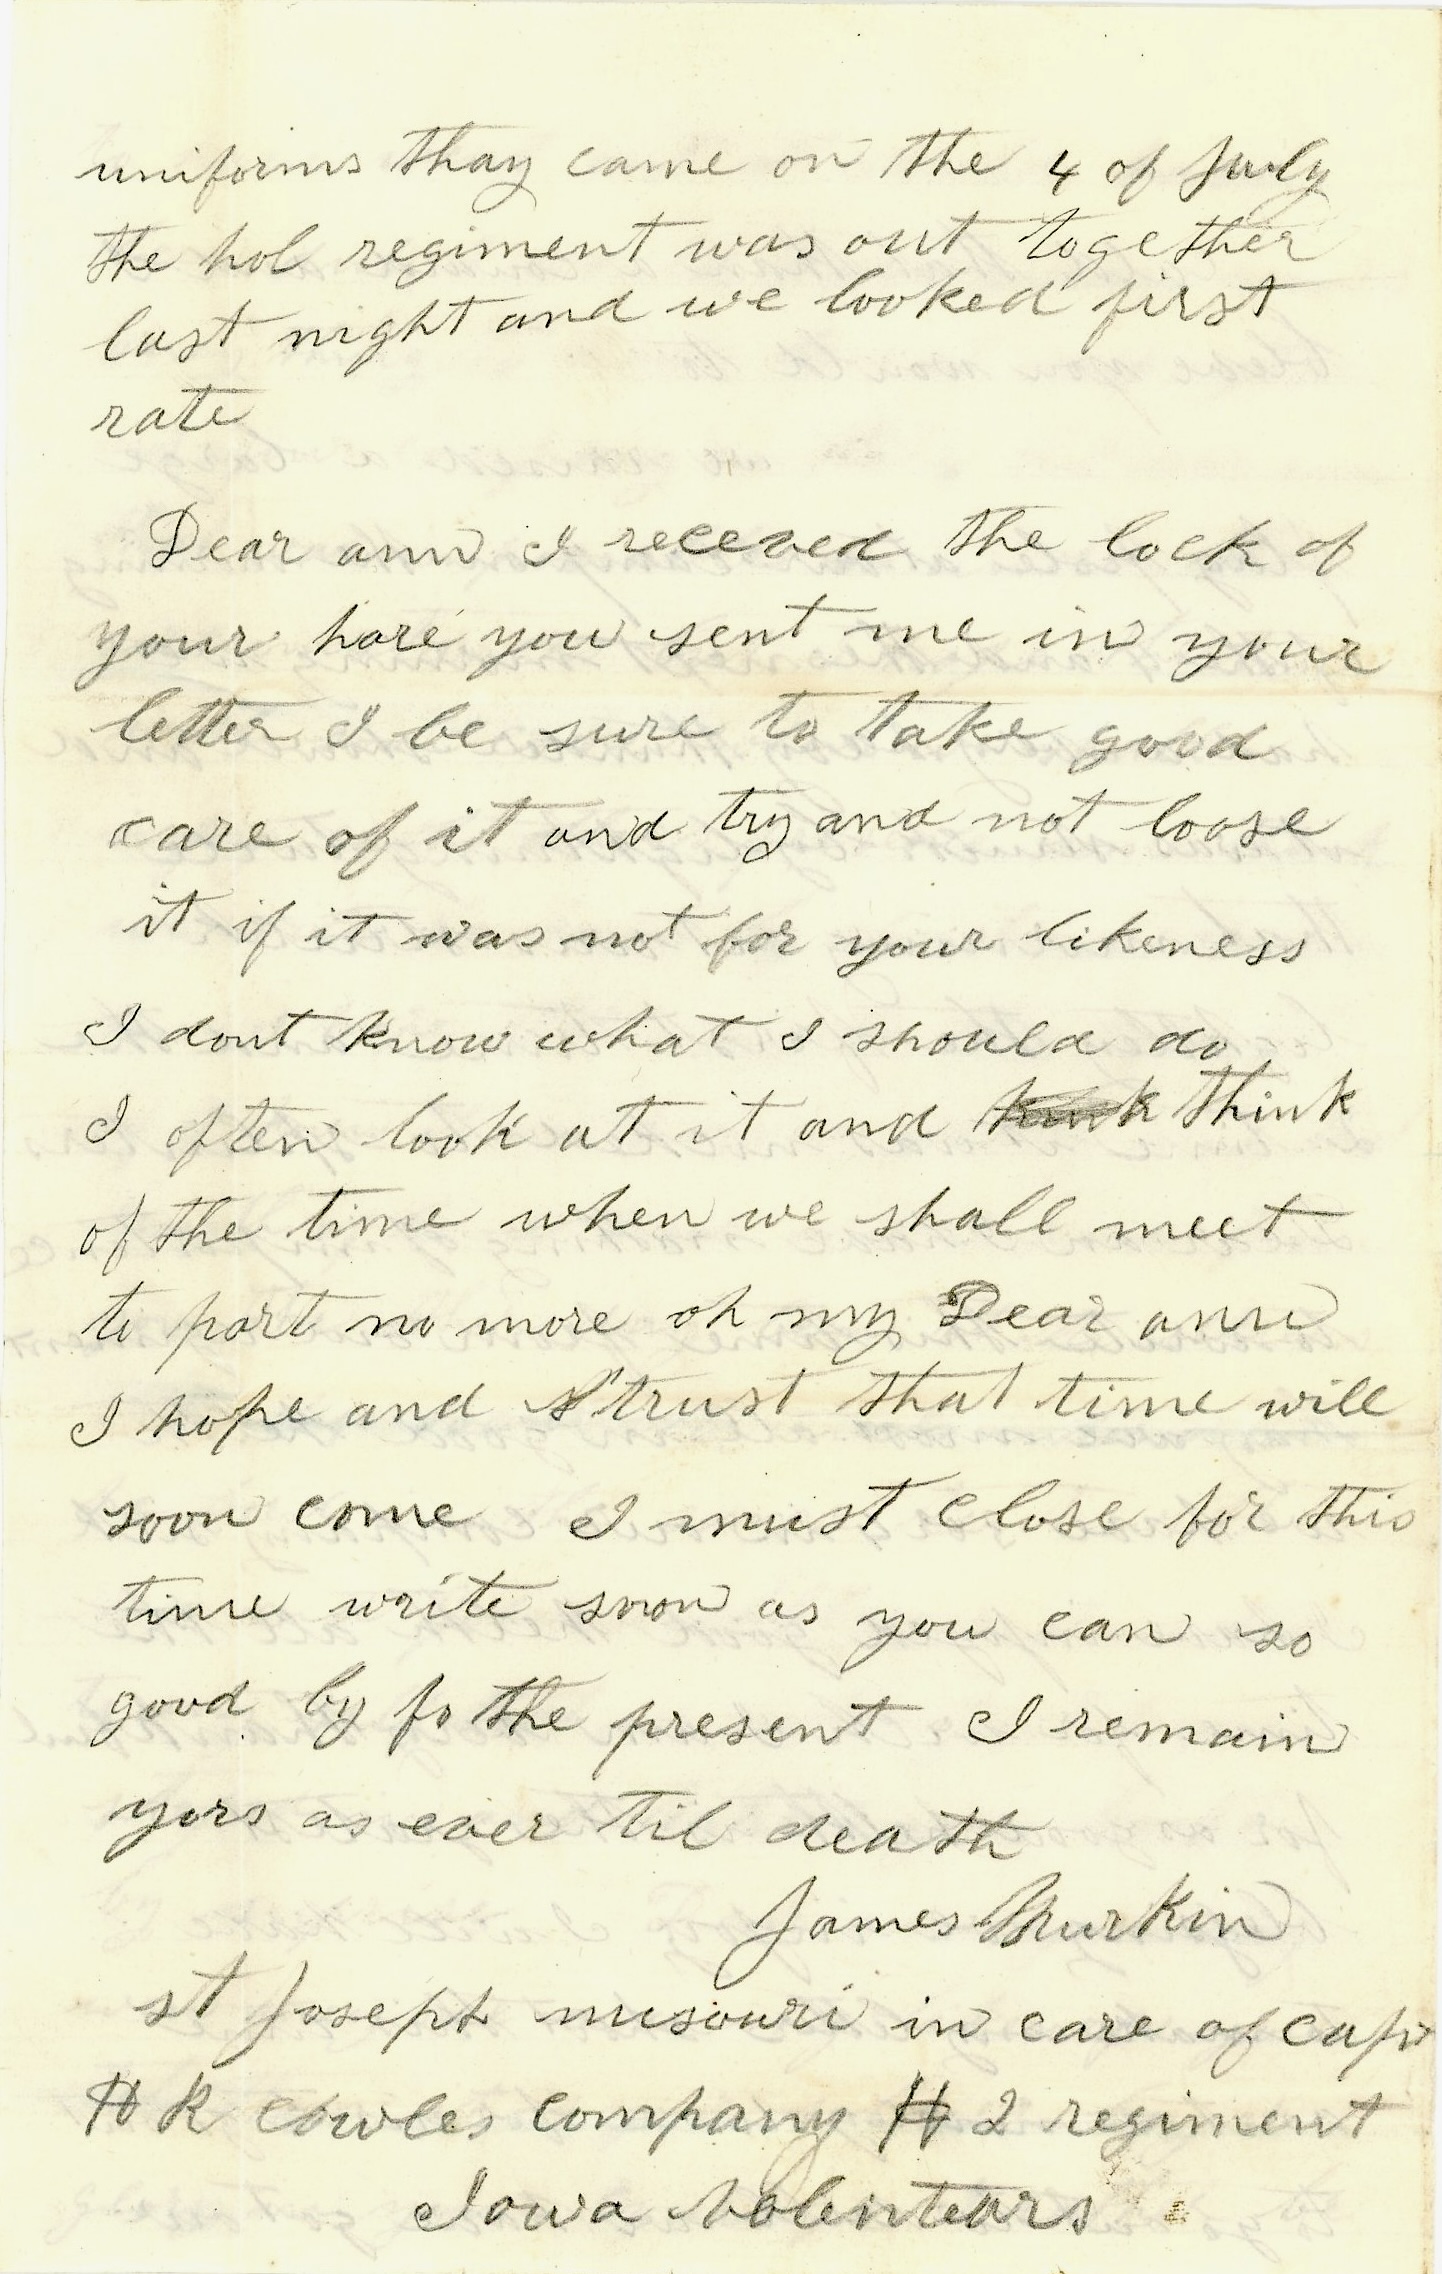 uniforms thay came on the 4 of July
the hol regiment was out together
last night and we looked first
rate
Dear ann I receved the lock of
your hare you sent me in your
letter I be sure to take good
care of it and try and not loose
it if it was not for your likeness
I dont know what I should do
I often look at it and think
of the time when we shall meet
to part no more oh my Dear ann
I hope and trust that time will
soon come I must close for this
time write soon as you can so
good by fo the present I remain
yors as ever til death
James Murkin
st Joseph misouri in care of capt
H R Cowles company H 2 regiment
Iowa volentears